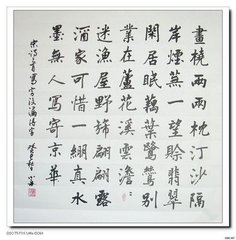 畫橈兩兩枕汀沙隔
岸煙蕪一望賒翡翠
閒居眠藕葉鷺鶿別
業在蘆花溪雲澹:
迷漁屋野旆翩翩露
酒家可惜一綳真水
墨無人写寄京華
宋詩